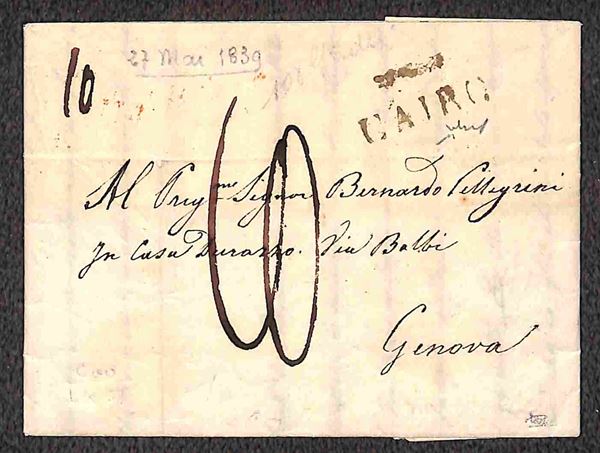 27 Mai 1839
10
CAIRO
60
Al Preg.me Signor Bernardo Pellegrini
In Casa Durazzo. Via Balbi
Genova